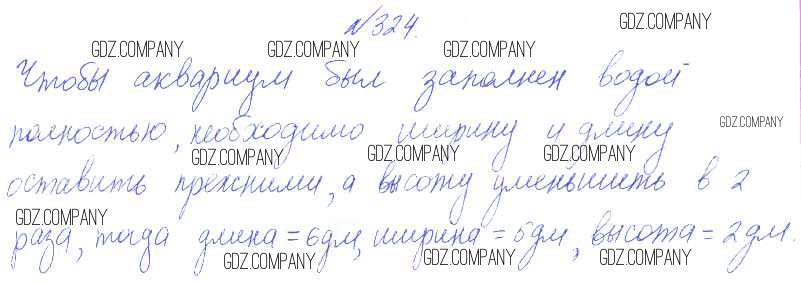 №324.
Чтобы аквариум был заполнен водой
полностью, необходимо ширину и длину
оставить прежними, а высоту уменьшить в 2
раза, тогда длина = 6дм, ширина = 5дм, высота = 2дм.
GDZ.COMPANY
GDZ.COMPANY
GDZ.COMPANY
GDZ.COMPANY
GDZ.COMPANY
GDZ.COMPANY
GDZ.COMPANY
GDZ.COMPANY
GDZ.COMPANY
GDZ.COMPANY
GDZ.COMPANY
GDZ.COMPANY